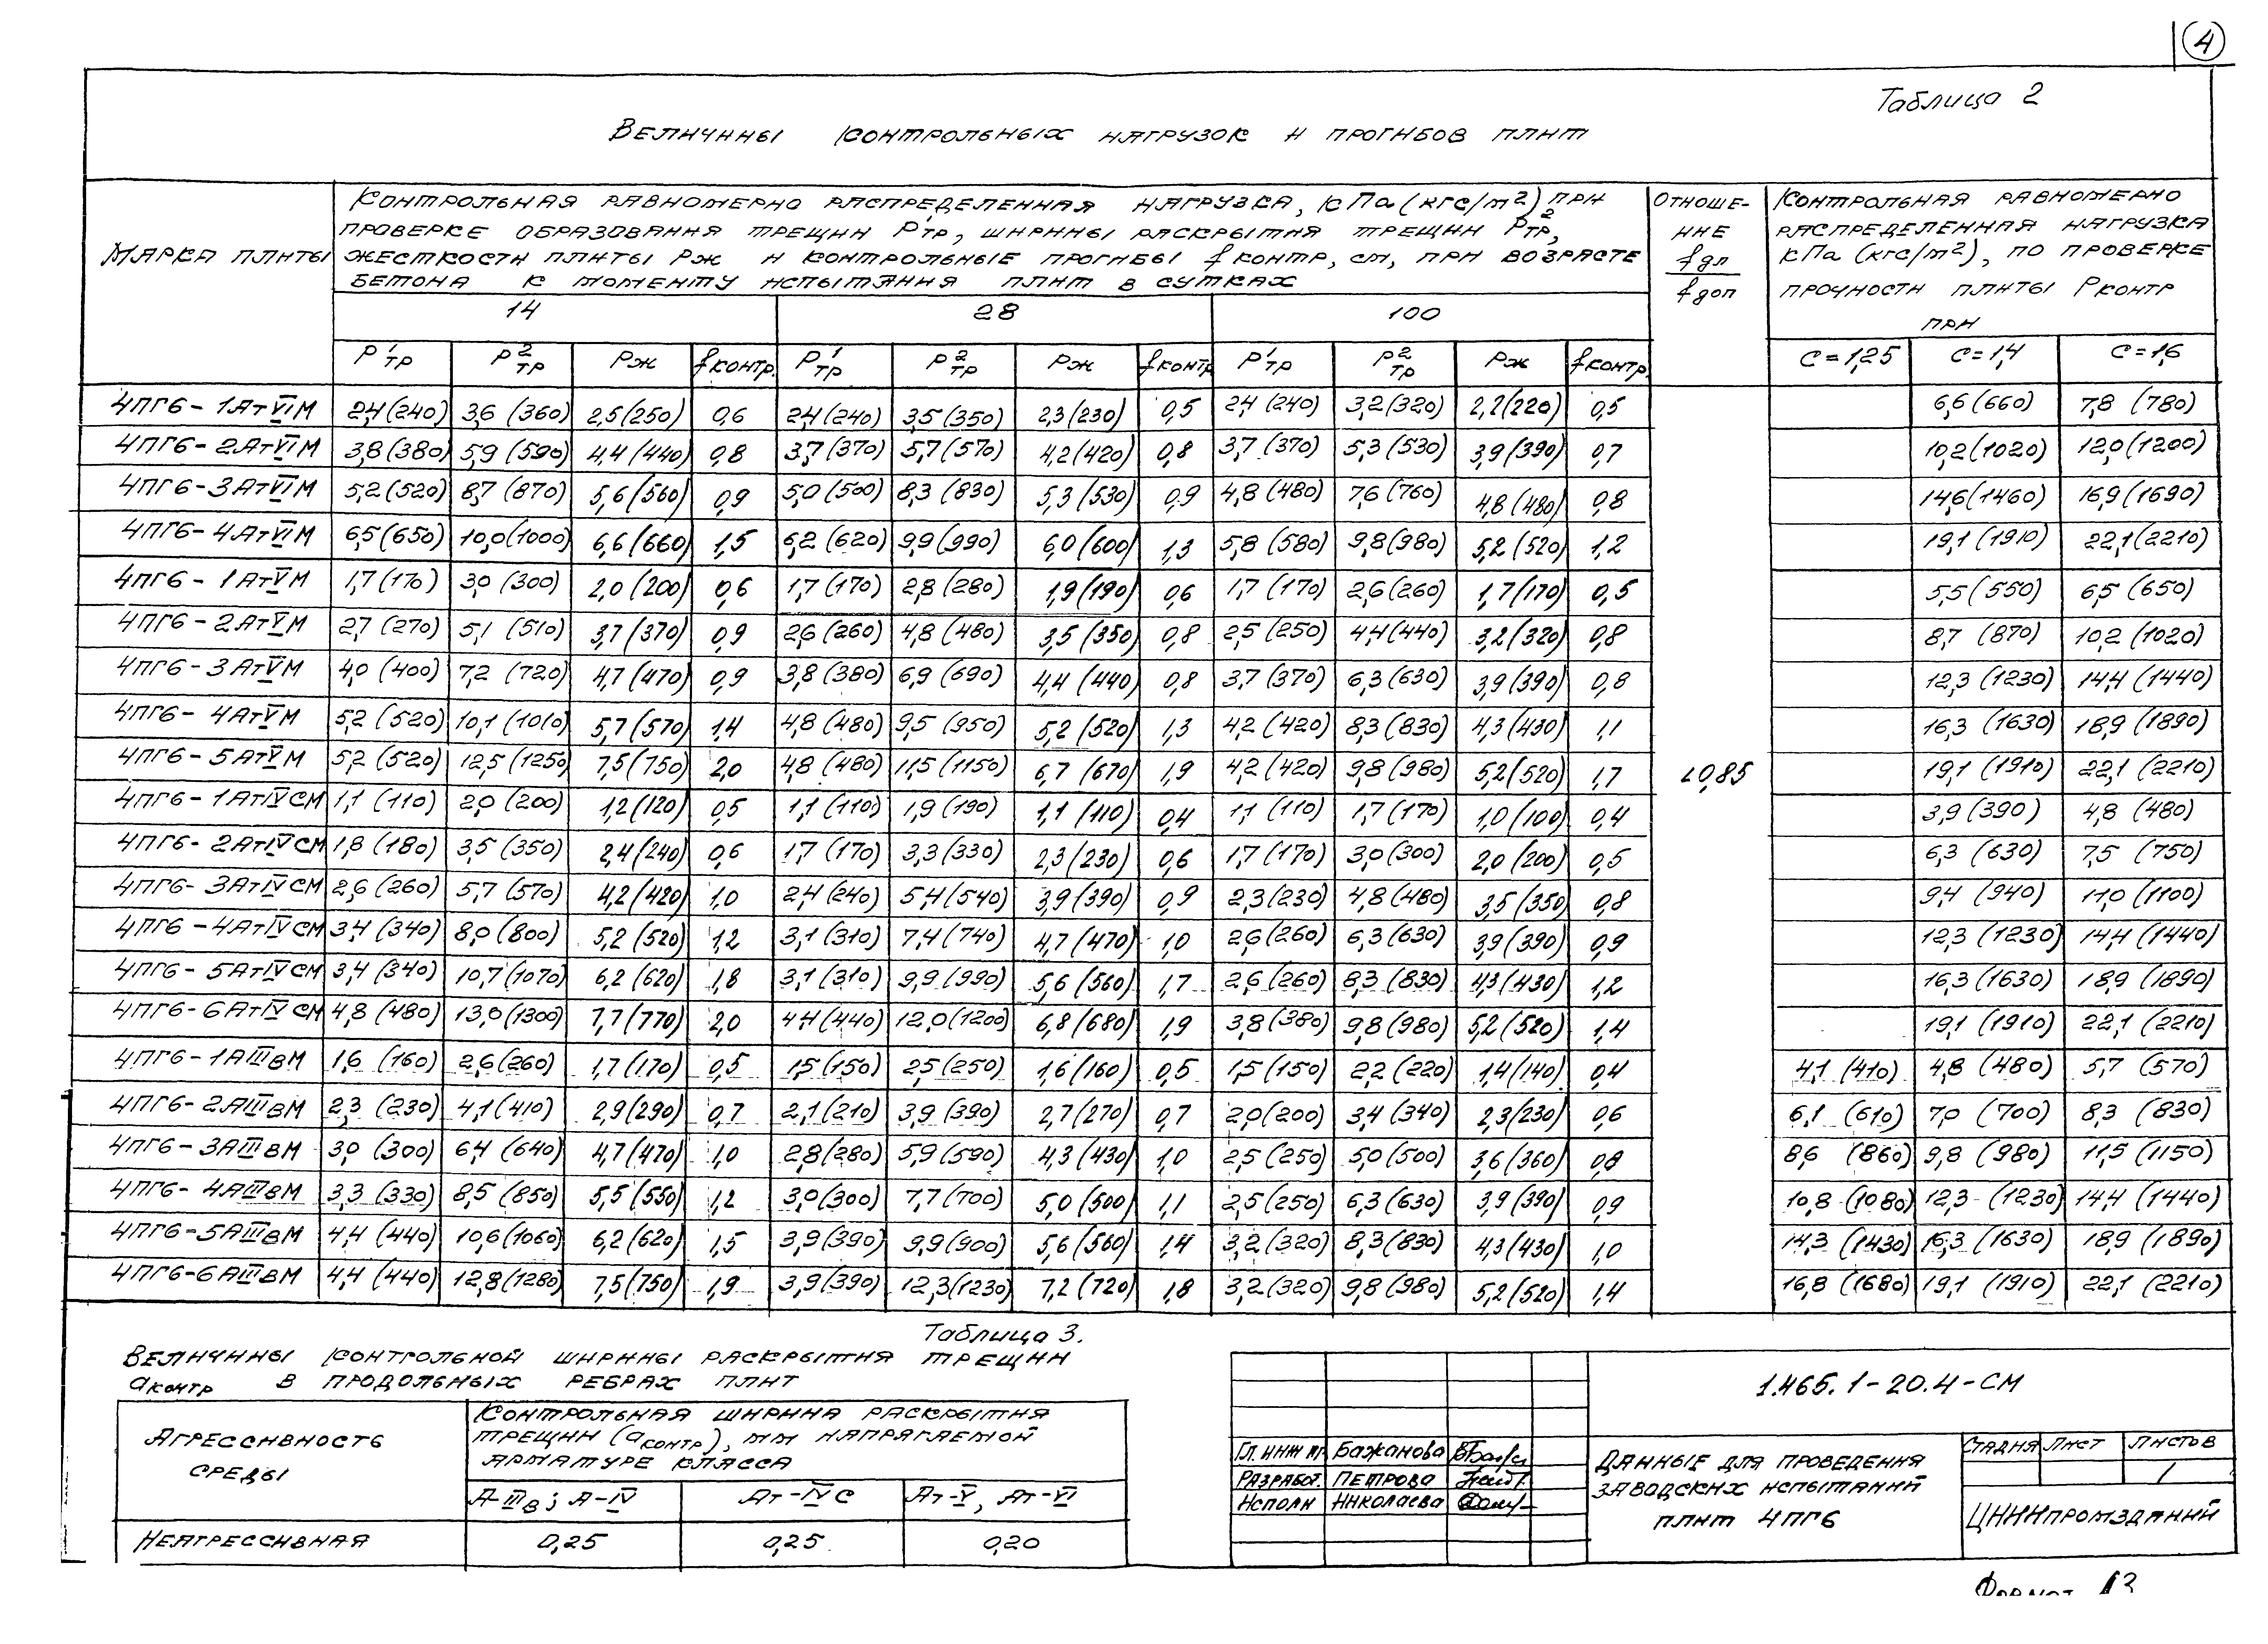 4
Таблица 2
Величины контрольных нагрузок и прогибов плит
Марка плиты
Контрольная равномерно распределенная нагрузка, кПа (кгс/м²) при
проверке образования трещин P¹тр, ширины раскрытия трещин P²тр,
жесткости плиты Pж и контрольные прогибы fконтр, см, при возрасте
бетона к моменту испытания плит в сутках
Отноше-
ние
fдл
fдоп
Контрольная равномерно
распределенная нагрузка
кПа (кгс/м²), по проверке
прочности плиты Pконтр
при
14 28 100
P¹тр P²тр Pж fконтр. P¹тр P²тр Pж fконтр P¹тр P²тр Pж fконтр. C=1,25 C=1,4 C=1,6
4ПГ6-1АтVIМ 2,4(240) 3,6 (360) 2,5(250) 0,6 2,4(240) 3,5(350) 2,3(230) 0,5 2,4 (240) 3,2(320) 2,2(220) 0,5 6,6(660) 7,8 (780)
4ПГ6-2АтVIМ 3,8(380) 5,9 (590) 4,4(440) 0,8 3,7(370) 5,7(570) 4,2(420) 0,8 3,7 (370) 5,3(530) 3,9(390) 0,7 10,2(1020) 12,0(1200)
4ПГ6-3АтVIМ 5,2(520) 8,7 (870) 5,6(560) 0,9 5,0(500) 8,3 (830) 5,3(530) 0,9 4,8 (480) 7,6(760) 4,8(480) 0,8 14,6(1460) 16,9(1690)
4ПГ6-4АтVIМ 6,5(650) 10,0(1000) 6,6(660) 1,5 6,2(620) 9,9(990) 6,0(600) 1,3 5,8 (580) 9,8(980) 5,2(520) 1,2 19,1(1910) 22,1(2210)
4ПГ6-1АтVМ 1,7(170) 3,0 (300) 2,0(200) 0,6 1,7(170) 2,8(280) 1,9(190) 0,6 1,7 (170) 2,6(260) 1,7(170) 0,5 5,5(550) 6,5 (650)
4ПГ6-2АтVМ 2,7(270) 5,1 (510) 3,7(370) 0,9 2,6(260) 4,8(480) 3,5(350) 0,8 2,5(250) 4,4(440) 3,2(320) 0,8 8,7 (870) 10,2(1020)
4ПГ6-3АтVМ 4,0 (400) 7,2 (720) 4,7(470) 0,9 3,8(380) 6,9(690) 4,4(440) 0,8 3,7(370) 6,3(630) 3,9(390) 0,8 12,3(1230) 14,4(1440)
4ПГ6-4АтVМ 5,2(520) 10,1(1010) 5,7(570) 1,4 4,8(480) 9,5(950) 5,2(520) 1,3 4,2(420) 8,3(830) 4,3(430) 1,1 16,3(1630) 18,9(1890)
4ПГ6-5АтVМ 5,2(520) 12,5(1250) 7,5(750) 2,0 4,8(480) 11,5(1150) 6,7(670) 1,9 4,2(420) 9,8(980) 5,2(520) 1,7 <0,85 19,1(1910) 22,1(2210)
4ПГ6-1АтIVСМ 1,1(110) 2,0(200) 1,2(120) 0,5 1,1(110) 1,9(190) 1,1(110) 0,4 1,1(110) 1,7(170) 1,0(100) 0,4 3,9(390) 4,8 (480)
4ПГ6-2АтIVСМ 1,8(180) 3,5(350) 2,4(240) 0,6 1,7(170) 3,3(330) 2,3(230) 0,6 1,7(170) 3,0(300) 2,0(200) 0,5 6,3 (630) 7,5 (750)
4ПГ6-3АтIVСМ 2,6(260) 5,7(570) 4,2(420) 1,0 2,4(240) 5,4(540) 3,9(390) 0,9 2,3(230) 4,8(480) 3,5(350) 0,8 9,4 (940) 11,0(1100)
4ПГ6-4АтIVСМ 3,4(340) 8,0(800) 5,2(520) 1,2 3,1(310) 7,4(740) 4,7(470) 1,0 2,6(260) 6,3(630) 3,9(390) 0,9 12,3(1230) 14,4(1440)
4ПГ6-5АтIVСМ 3,4(340) 10,7(1070) 6,2(620) 1,8 3,1(310) 9,9(990) 5,6(560) 1,7 2,6(260) 8,3(830) 4,3(430) 1,2 16,3(1630) 18,9(1890)
4ПГ6-6АтIVСМ 4,8(480) 13,0(1300) 7,7(770) 2,0 4,4(440) 12,0(1200) 6,8(680) 1,9 3,8(380) 9,8(980) 5,2(520) 1,4 19,1(1910) 22,1(2210)
4ПГ6-1АIIIвМ 1,6 (160) 2,6(260) 1,7(170) 0,5 1,5(150) 2,5(250) 1,6(160) 0,5 1,5(150) 2,2(220) 1,4(140) 0,4 4,1(410) 4,8 (480) 5,7 (570)
4ПГ6-2АIIIвМ 2,3 (230) 4,1(410) 2,9(290) 0,7 2,1(210) 3,9(390) 2,7(270) 0,7 2,0(200) 3,4(340) 2,3(230) 0,6 6,1 (610) 7,0 (700) 8,3 (830)
4ПГ6-3АIIIвМ 3,0 (300) 6,4(640) 4,7(470) 1,0 2,8(280) 5,9(590) 4,3(430) 1,0 2,5(250) 5,0(500) 3,6(360) 0,8 8,6 (860) 9,8 (980) 11,5(1150)
4ПГ6-4АIIIвМ 3,3 (330) 8,5(850) 5,5(550) 1,2 3,0(300) 7,7(700) 5,0(500) 1,1 2,5(250) 6,3(630) 3,9(390) 0,9 10,8(1080) 12,3(1230) 14,4(1440)
4ПГ6-5АIIIвМ 4,4(440) 10,6(1060) 6,2(620) 1,5 3,9(390) 9,9(900) 5,6(560) 1,4 3,2(320) 8,3(830) 4,3(430) 1,0 14,3(1430) 16,3(1630) 18,9(1890)
4ПГ6-6АIIIвМ 4,4(440) 12,8(1280) 7,5(750) 1,9 3,9(390) 12,3(1230) 7,2(720) 1,8 3,2(320) 9,8(980) 5,2(520) 1,4 16,8(1680) 19,1(1910) 22,1(2210)
Таблица 3.
Величины контрольной ширины раскрытия трещин
aконтр в продольных ребрах плит
Агрессивность
среды
Контрольная ширина раскрытия
трещин (aконтр), мм напрягаемой
арматуре класса
А-IIIв; А-IV Ат-IVС Ат-V, Ат-VI
Неагрессивная 0,25 0,25 0,20
1.465.1-20.4-СМ
Гл. инж пр. Бажанова
Разработ. Петрова
Исполн Николаева
Данные для проведения
заводских испытаний
плит 4ПГ6
Стадия Лист Листов
1
ЦНИИпромзданий
Формат А3